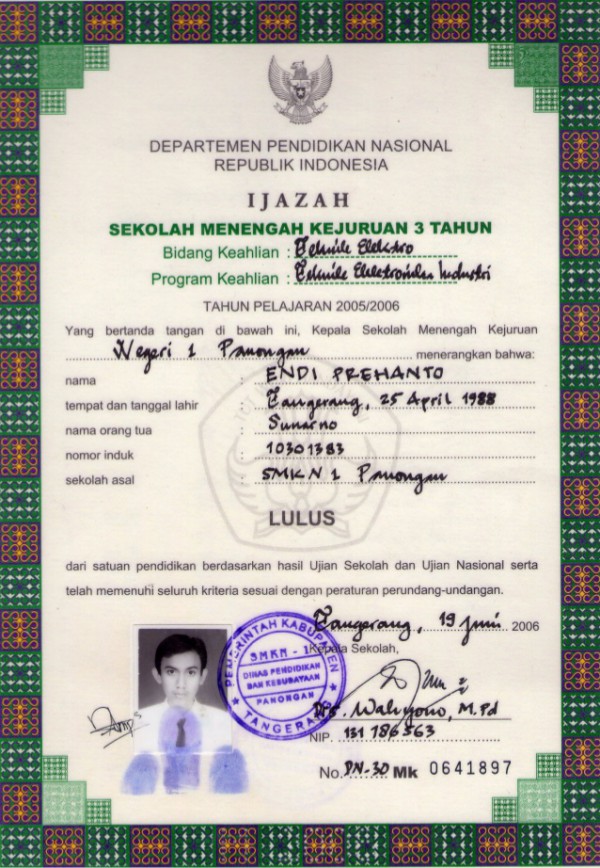 DEPARTEMEN PENDIDIKAN NASIONAL
REPUBLIK INDONESIA
IJAZAH
SEKOLAH MENENGAH KEJURUAN 3 TAHUN
Bidang Keahlian : Teknik Elektro
Program Keahlian : Teknik Elektronika Industri
TAHUN PELAJARAN 2005/2006
Yang bertanda tangan di bawah ini, Kepala Sekolah Menengah Kejuruan
Negeri 1 Panongan menerangkan bahwa:
nama : ENDI PREHANTO
tempat dan tanggal lahir : Tangerang, 25 April 1988
nama orang tua : Sunarno
nomor induk : 10301383
sekolah asal : SMKN 1 Panongan
LULUS
dari satuan pendidikan berdasarkan hasil Ujian Sekolah dan Ujian Nasional serta
telah memenuhi seluruh kriteria sesuai dengan peraturan perundang-undangan.
Tangerang, 19 Juni 2006
Kepala Sekolah,
PEMERINTAH KABUPATEN
SMKN - 1
DINAS PENDIDIKAN
DAN KEBUDAYAAN
PANONGAN
TANGERANG
Drs. Waluyono, M.Pd
NIP. 131 786 363
No. DN-30 Mk 0641897